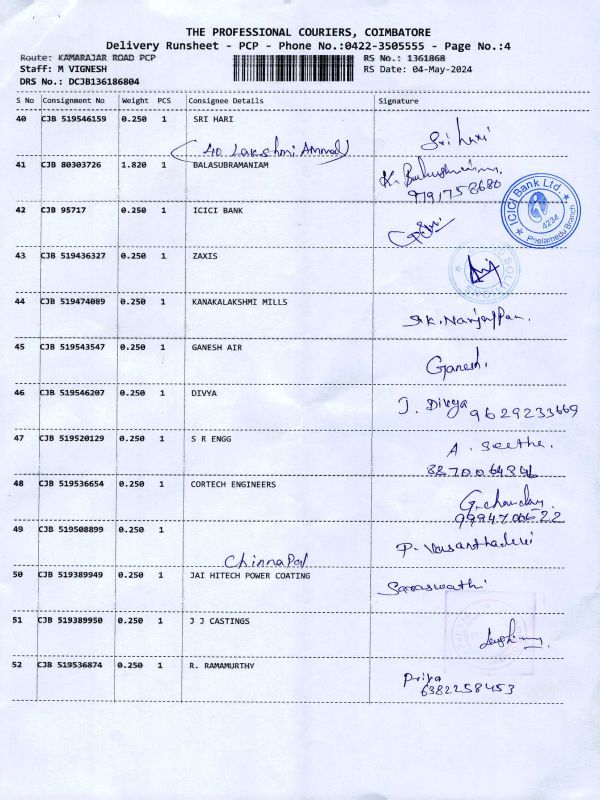 THE PROFESSIONAL COURIERS, COIMBATORE
Delivery Runsheet - PCP - Phone No.:0422-3505555 - Page No.:4
Route: KAMARAJAR ROAD PCP
RS No.: 1361868
Staff: M VIGNESH
RS Date: 04-May-2024
DRS No.: DCJB136186804
S No Consignment No Weight PCS Consignee Details Signature
40 CJB 519546159 0.250 1 SRI HARI Sri hari
40 Lakshmi Ammal
41 CJB 80303726 1.820 1 BALASUBRAMANIAM
9791758680
42 CJB 95717 0.250 1 ICICI BANK
ICICI Bank Ltd. 4234 Peelamedu Branch
43 CJB 519436327 0.250 1 ZAXIS
44 CJB 519474089 0.250 1 KANAKALAKSHMI MILLS
45 CJB 519543547 0.250 1 GANESH AIR Ganesh.
46 CJB 519546207 0.250 1 DIVYA J. Divya 9629233669
47 CJB 519520129 0.250 1 S R ENGG A. Seetha.
48 CJB 519536654 0.250 1 CORTECH ENGINEERS
49 CJB 519508899 0.250 1 P. Vasanthadevi
50 CJB 519389949 0.250 1 JAI HITECH POWER COATING Saraswathi
51 CJB 519389950 0.250 1 J J CASTINGS
52 CJB 519536874 0.250 1 R. RAMAMURTHY Priya
6382258453